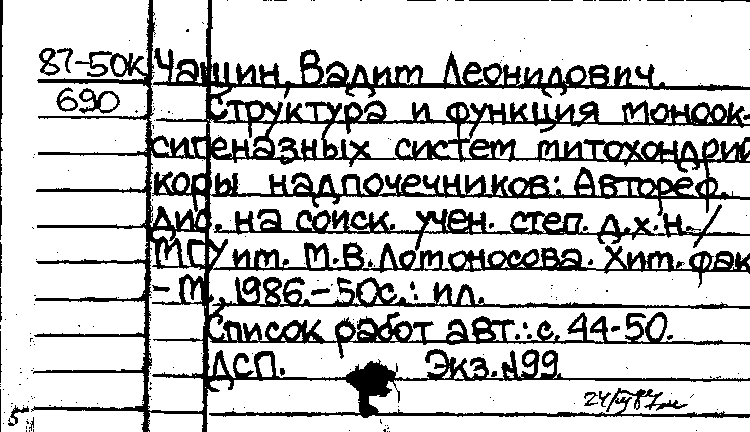 87-50К Чащин, Вадим Леонидович.
690 Структура и функция моноок-
сигеназных систем митохондрий
коры надпочечников: Автореф.
дис. на соиск. учен. степ. д.х.н./
МГУ им. М.В.Ломоносова. Хим. фак
- М., 1986.-50с.: ил.
Список работ авт.: с. 44-50.
ДСП. Экз. №99
5